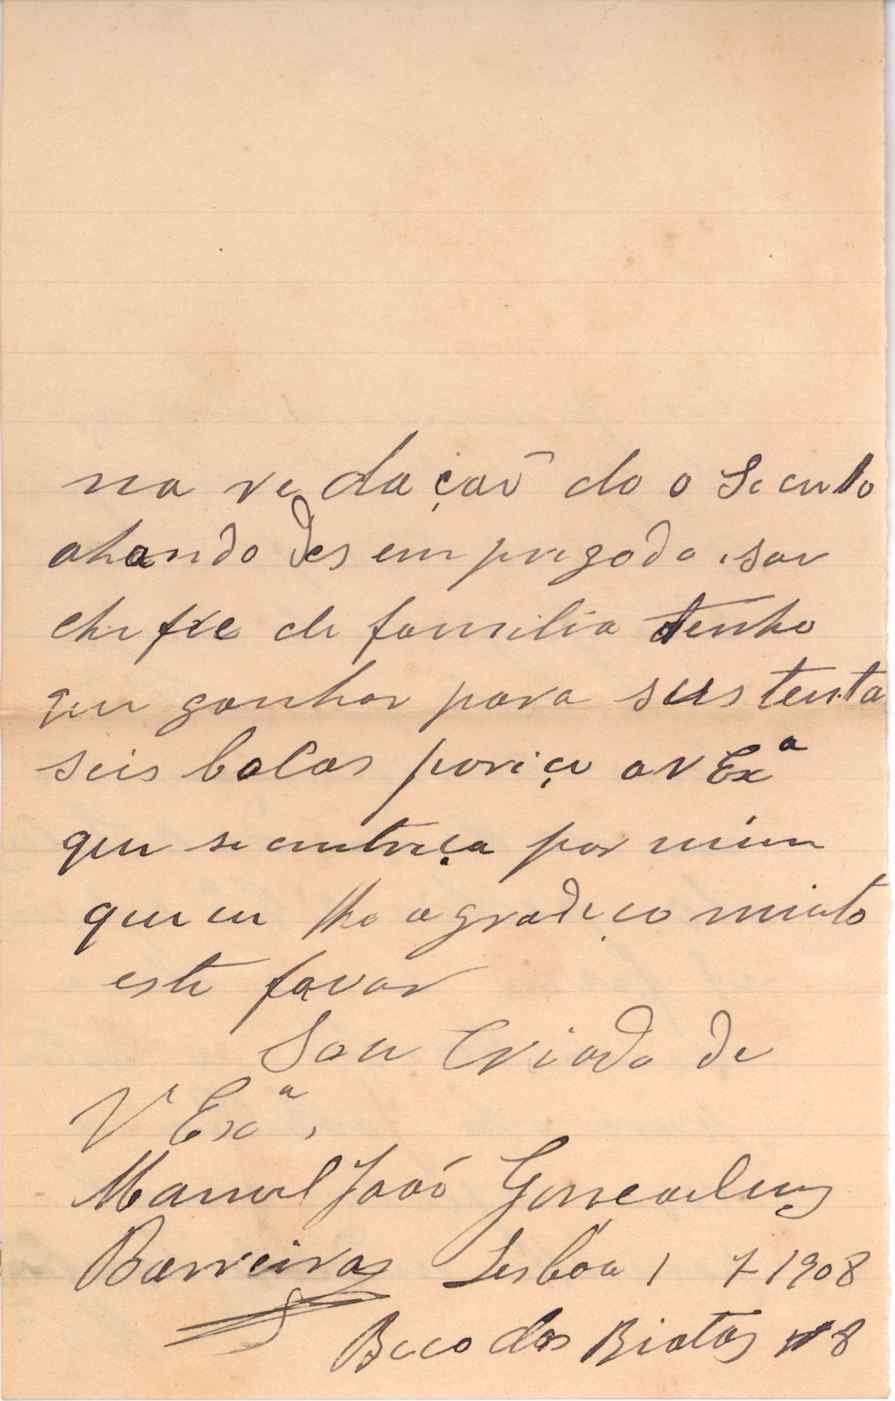 na redação do o Seculo
ahando desempregado sou
cheffe de familia tenho
que ganhar para sustenta
seis bocas poriço a V Exª
que se
por mim
que eu lhe agradeço muito
este favor
Sou Criado de
V Exª,
Manuel João Goncalues
Barreiros Lisbôa 1 7 1908
Beco dos Biatas nº 8